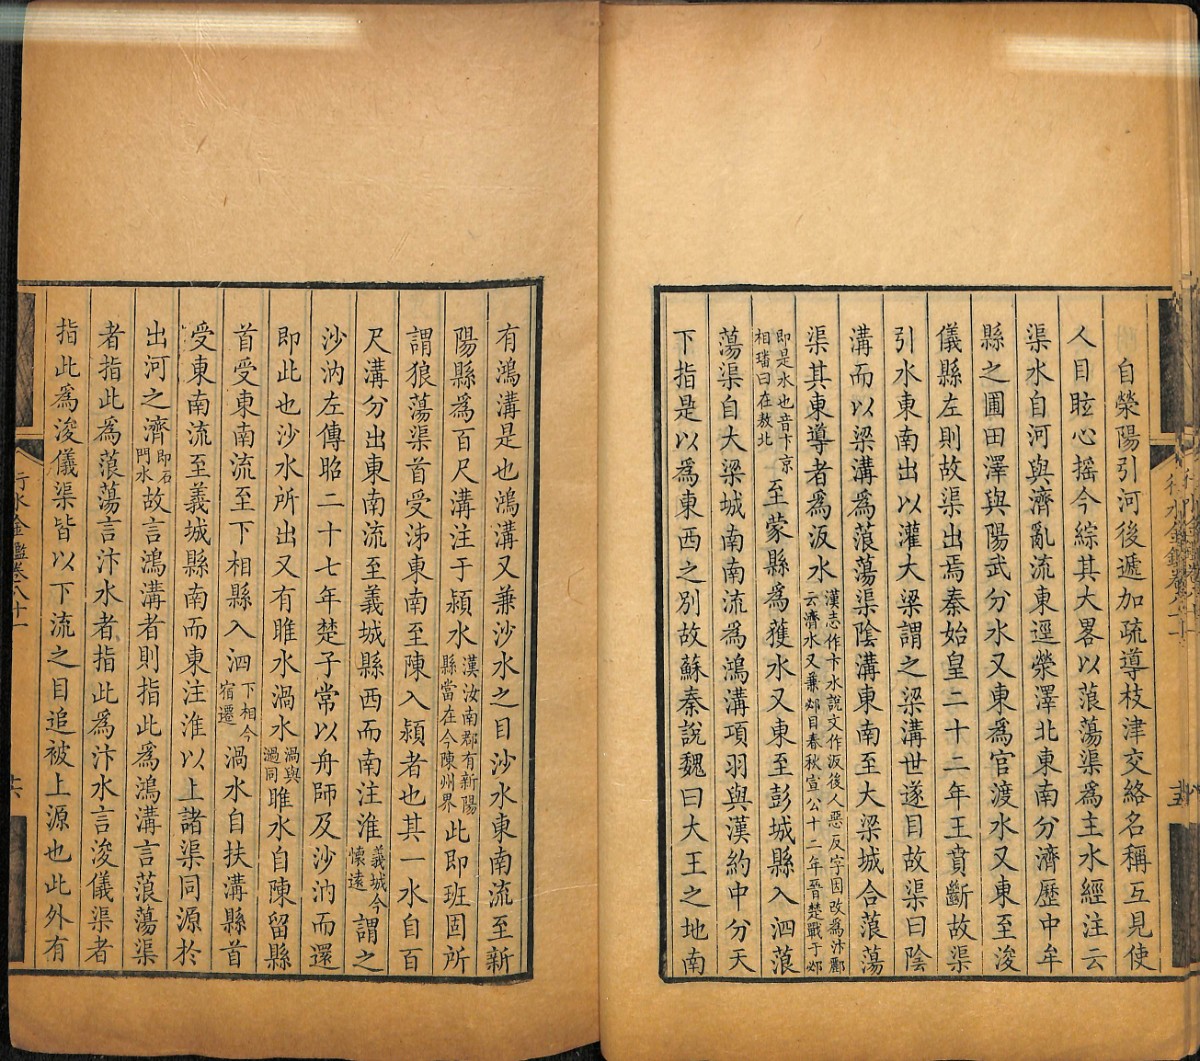 自滎陽引河後遞加疏導枝津交絡名稱互見使
人目眩心搖今綜其大畧以蒗蕩渠爲主水經注云
渠水自河與濟亂流東逕滎澤北東南分濟歷中牟
縣之圃田澤與陽武分水又東爲官渡水又東至浚
儀縣左則故渠出焉秦始皇二十二年王賁斷故渠
引水東南出以灌大梁謂之梁溝世遂目故渠曰陰
溝而以梁溝爲蒗蕩渠陰溝東南至大梁城合蒗蕩
渠其東導者爲汳水漢志作卞水說文作汳後人惡反字因改爲汴酈云濟水又兼邲目春秋宣公十二年晉楚戰于邲
即是水也音卞京相璠曰在敖北至蒙縣爲獲水又東至彭城縣入泗蒗
蕩渠自大梁城南南流爲鴻溝項羽與漢約中分天
下指是以爲東西之別故蘇秦說魏曰大王之地南
有鴻溝是也鴻溝又兼沙水之目沙水東南流至新
陽縣爲百尺溝注于潁水漢汝南郡有新陽縣當在今陳州界此即班固所
謂狼蕩渠首受泲東南至陳入潁者也其一水自百
尺溝分出東南流至義城縣西而南注淮義城今懷遠謂之
沙汭左傳昭二十七年楚子常以舟師及沙汭而還
即此也沙水所出又有睢水渦水渦與濄同睢水自陳留縣
首受東南流至下相縣入泗下相今宿遷渦水自扶溝縣首
受東南流至義城縣南而東注淮以上諸渠同源於
出河之濟即石門水故言鴻溝者則指此爲鴻溝言蒗蕩渠
者指此爲蒗蕩言汴水者指此爲汴水言浚儀渠者
指此爲浚儀渠皆以下流之目追被上源也此外有
行水金鑑卷八十一